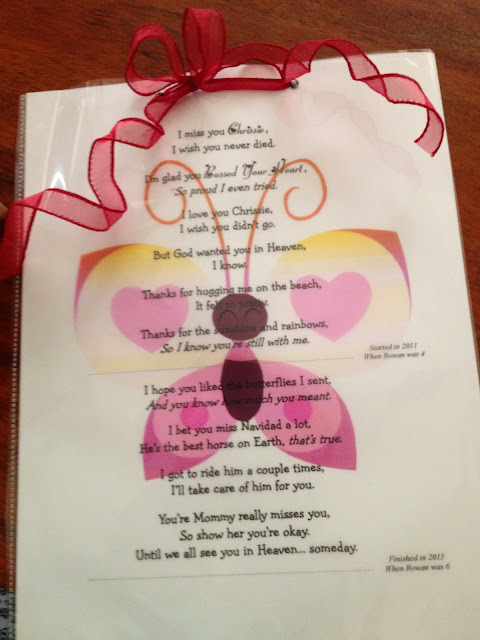 I miss you Chrissie,
I wish you never died.
I'm glad you Bossed Your Heart,
So proud I even tried.
I love you Chrissie,
I wish you didn't go.
But God wanted you in Heaven,
I know.
Thanks for hugging me on the beach,
It felt so pretty.
Thanks for the sunshine and rainbows,
So I know you're still with me.
Started in 2011
When Rowan was 4
I hope you liked the butterflies I sent,
And you know how much you meant.
I bet you miss Navidad a lot,
He's the best horse on Earth, that's true.
I got to ride him a couple times,
I'll take care of him for you.
You're Mommy really misses you,
So show her you're okay.
Until we all see you in Heaven... someday.
Finished in 2013
When Rowan was 6